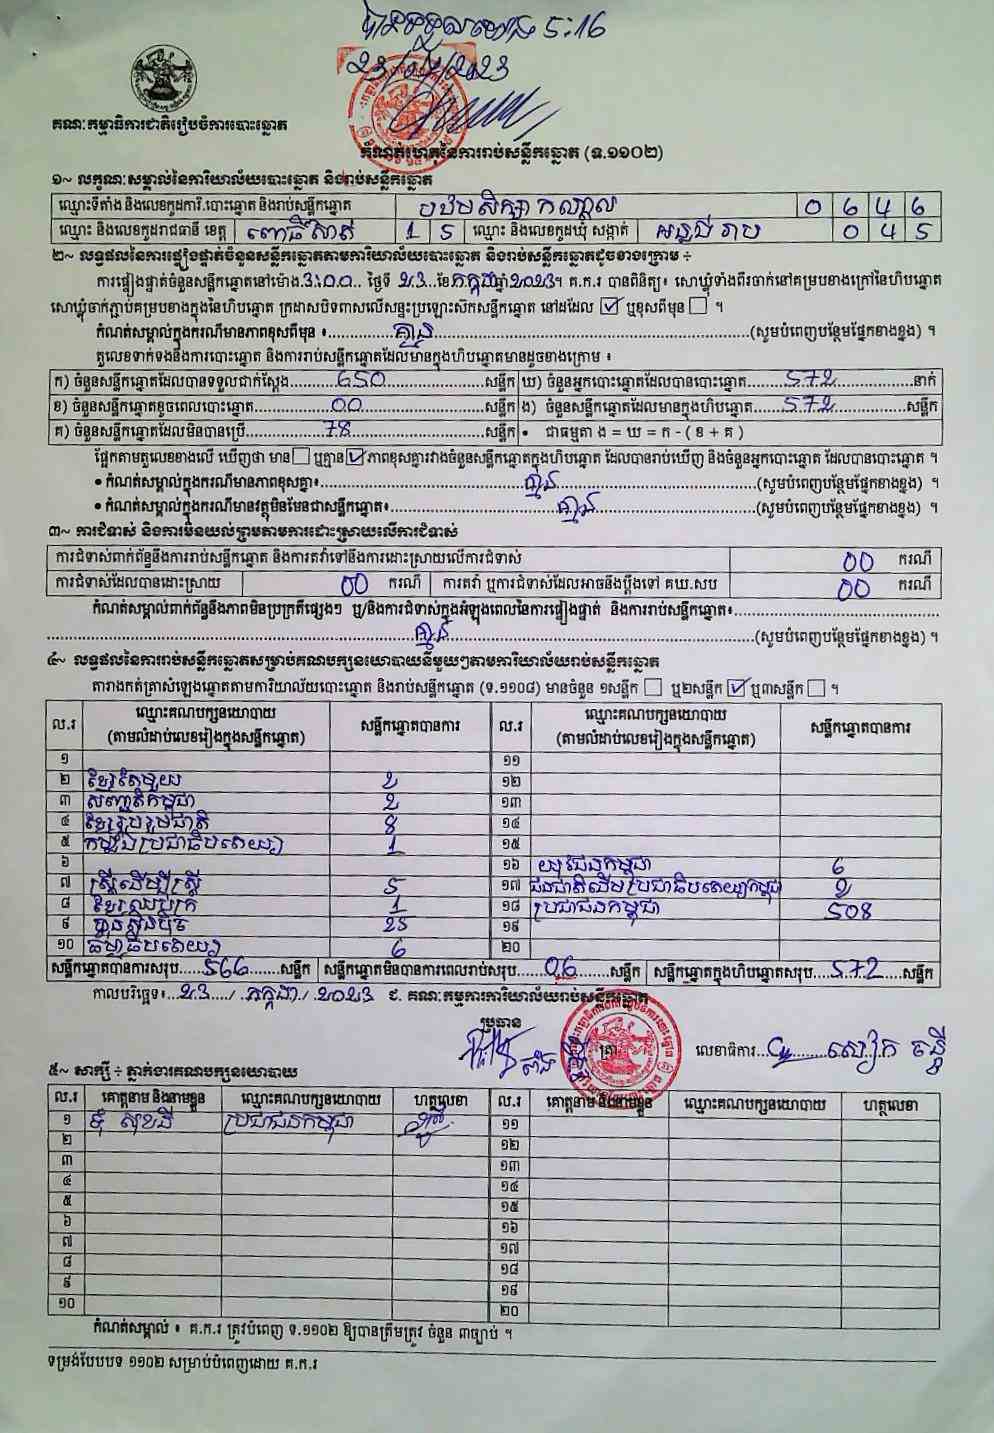 បានទទួលម៉ោង 5:16
23/07/2023
គណៈកម្មាធិការជាតិរៀបចំការបោះឆ្នោត
កំណត់ហេតុនៃការរាប់សន្លឹកឆ្នោត (ទ.១១០២)
១~ លក្ខណៈសម្គាល់នៃការិយាល័យបោះឆ្នោត និងរាប់សន្លឹកឆ្នោត
ឈ្មោះទីតាំង និងលេខកូដការិ.បោះឆ្នោត និងរាប់សន្លឹកឆ្នោត បឋមសិក្សា កណ្តាល 0 6 4 6
ឈ្មោះ និងលេខកូដរាជធានី ខេត្ត ពោធិ៍សាត់ 1 5 ឈ្មោះ និងលេខកូដឃុំ សង្កាត់ អន្លង់ វាប 0 4 5
២~ លទ្ធផលនៃការផ្ទៀងផ្ទាត់ចំនួនសន្លឹកឆ្នោតតាមការិយាល័យបោះឆ្នោត និងរាប់សន្លឹកឆ្នោតដូចខាងក្រោម ÷
ការផ្ទៀងផ្ទាត់ចំនួនសន្លឹកឆ្នោតនៅម៉ោង 3:00.. ថ្ងៃទី 23...ខែកក្កដាឆ្នាំ2023។ គ.ក.រ បានពិនិត្យ៖ សោឃ្លុំទាំងពីរចាក់នៅគម្របខាងក្រៅនៃហិបឆ្នោត
សោឃ្លុំចាក់ភ្ជាប់គម្របខាងក្នុងនៃហិបឆ្នោត ក្រដាសបិទពាសលើសន្ទះប្រឡោះស៊កសន្លឹកឆ្នោត នៅដដែល ☑ ឬខុសពីមុន ☐ ។
កំណត់សម្គាល់ក្នុងករណីមានភាពខុសពីមុន ៖ គ្មាន (សូមបំពេញបន្ថែមផ្នែកខាងខ្នង) ។
តួលេខទាក់ទងនឹងការបោះឆ្នោត និងការរាប់សន្លឹកឆ្នោតដែលមានក្នុងហិបឆ្នោតមានដូចខាងក្រោម ៖
ក) ចំនួនសន្លឹកឆ្នោតដែលបានទទួលជាក់ស្តែង 650 សន្លឹក ឃ) ចំនួនអ្នកបោះឆ្នោតដែលបានបោះឆ្នោត 572 នាក់
ខ) ចំនួនសន្លឹកឆ្នោតខូចពេលបោះឆ្នោត 00 សន្លឹក ង) ចំនួនសន្លឹកឆ្នោតដែលមានក្នុងហិបឆ្នោត 572 សន្លឹក
គ) ចំនួនសន្លឹកឆ្នោតដែលមិនបានប្រើ 78 សន្លឹក • ជាធម្មតា ង = ឃ = ក - ( ខ + គ )
ផ្អែកតាមតួលេខខាងលើ ឃើញថា មាន ☐ ឬគ្មាន ☑ ភាពខុសគ្នារវាងចំនួនសន្លឹកឆ្នោតក្នុងហិបឆ្នោត ដែលបានរាប់ឃើញ និងចំនួនអ្នកបោះឆ្នោត ដែលបានបោះឆ្នោត ។
• កំណត់សម្គាល់ក្នុងករណីមានភាពខុសគ្នា៖ គ្មាន (សូមបំពេញបន្ថែមផ្នែកខាងខ្នង) ។
• កំណត់សម្គាល់ក្នុងករណីមានវត្ថុមិនមែនជាសន្លឹកឆ្នោត៖ គ្មាន (សូមបំពេញបន្ថែមផ្នែកខាងខ្នង) ។
៣~ ការជំទាស់ និងការមិនយល់ព្រមតាមការដោះស្រាយលើការជំទាស់
ការជំទាស់ពាក់ព័ន្ធនឹងការរាប់សន្លឹកឆ្នោត និងការតវ៉ាទៅនឹងការដោះស្រាយលើការជំទាស់ 00 ករណី
ការជំទាស់ដែលបានដោះស្រាយ 00 ករណី ការតវ៉ា ឬការជំទាស់ដែលអាចនឹងប្តឹងទៅ គឃ.សប 00 ករណី
កំណត់សម្គាល់ពាក់ព័ន្ធនឹងភាពមិនប្រក្រតីផ្សេងៗ ឬ/និងការជំទាស់ក្នុងអំឡុងពេលនៃការផ្ទៀងផ្ទាត់ និងការរាប់សន្លឹកឆ្នោត៖
គ្មាន (សូមបំពេញបន្ថែមផ្នែកខាងខ្នង) ។
៤~ លទ្ធផលនៃការរាប់សន្លឹកឆ្នោតសម្រាប់គណបក្សនយោបាយនីមួយៗតាមការិយាល័យរាប់សន្លឹកឆ្នោត
តារាងកត់ត្រាសំឡេងឆ្នោតតាមការិយាល័យបោះឆ្នោត និងរាប់សន្លឹកឆ្នោត (ទ.១១០៨) មានចំនួន ១សន្លឹក ☐ ឬ២សន្លឹក ☑ ឬ៣សន្លឹក ☐ ។
ល.រ ឈ្មោះគណបក្សនយោបាយ (តាមលំដាប់លេខរៀងក្នុងសន្លឹកឆ្នោត) សន្លឹកឆ្នោតបានការ ល.រ ឈ្មោះគណបក្សនយោបាយ (តាមលំដាប់លេខរៀងក្នុងសន្លឹកឆ្នោត) សន្លឹកឆ្នោតបានការ
១ ១១
២ ខ្មែរតែមួយ 2 ១២
៣ សញ្ជាតិកម្ពុជា 2 ១៣
៤ ខ្មែររួបរួមជាតិ 8 ១៤
៥ កម្លាំងប្រជាធិបតេយ្យ 1 ១៥
៦ ១៦ យុវជនកម្ពុជា 6
៧ ស្ត្រីដើម្បីស្ត្រី 5 ១៧ ជនជាតិដើមប្រជាធិបតេយ្យកម្ពុជា 2
៨ ខ្មែរឈប់ក្រ 1 ១៨ ប្រជាជនកម្ពុជា 508
៩ ហ្វ៊ុនស៊ិនប៉ិច 25 ១៩
១០ ធម្មាធិបតេយ្យ 6 ២០
សន្លឹកឆ្នោតបានការសរុប 566 សន្លឹក សន្លឹកឆ្នោតមិនបានការពេលរាប់សរុប 06 សន្លឹក សន្លឹកឆ្នោតក្នុងហិបឆ្នោតសរុប 572 សន្លឹក
កាលបរិច្ឆេទ៖ 23 / កក្កដា / 2023 ជ. គណៈកម្មការការិយាល័យរាប់សន្លឹកឆ្នោត
ប្រធាន
ត្រា លេខាធិការ
៥~ សាក្សី ÷ ភ្នាក់ងារគណបក្សនយោបាយ
ល.រ គោត្តនាម និងនាមខ្លួន ឈ្មោះគណបក្សនយោបាយ ហត្ថលេខា ល.រ គោត្តនាម និងនាមខ្លួន ឈ្មោះគណបក្សនយោបាយ ហត្ថលេខា
១ ប្រជាជនកម្ពុជា ១១
២ ១២
៣ ១៣
៤ ១៤
៥ ១៥
៦ ១៦
៧ ១៧
៨ ១៨
៩ ១៩
១០ ២០
កំណត់សម្គាល់ ៖ គ.ក.រ ត្រូវបំពេញ ទ.១១០២ ឱ្យបានត្រឹមត្រូវ ចំនួន ៣ច្បាប់ ។
ទម្រង់បែបបទ ១១០២ សម្រាប់បំពេញដោយ គ.ក.រ